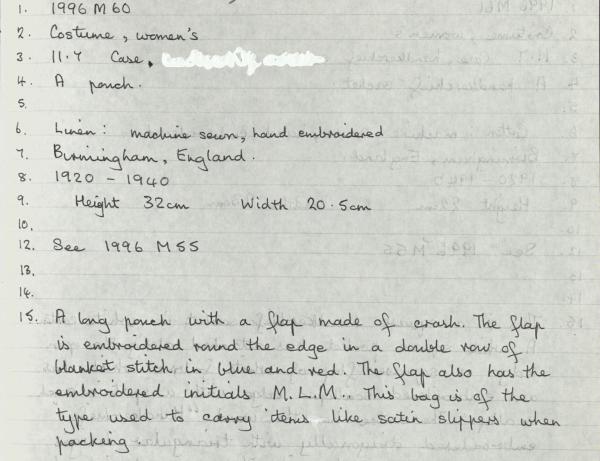 1. 1996 M 60
2. Costume, women's
3. 11.7 Case,
4. A pouch.
5.
6. Linen: machine sewn, hand embroidered
7. Birmingham, England.
8. 1920 - 1940
9. Height 32cm Width 20.5cm
10.
12. See 1996 M 55
13.
14.
15. A long pouch with a flap made of crash. The flap
is embroidered round the edge in a double row of
blanket stitch in blue and red. The flap also has the
embroidered initials M.L.M.. This bag is of the
type used to carry items like satin slippers when
packing.